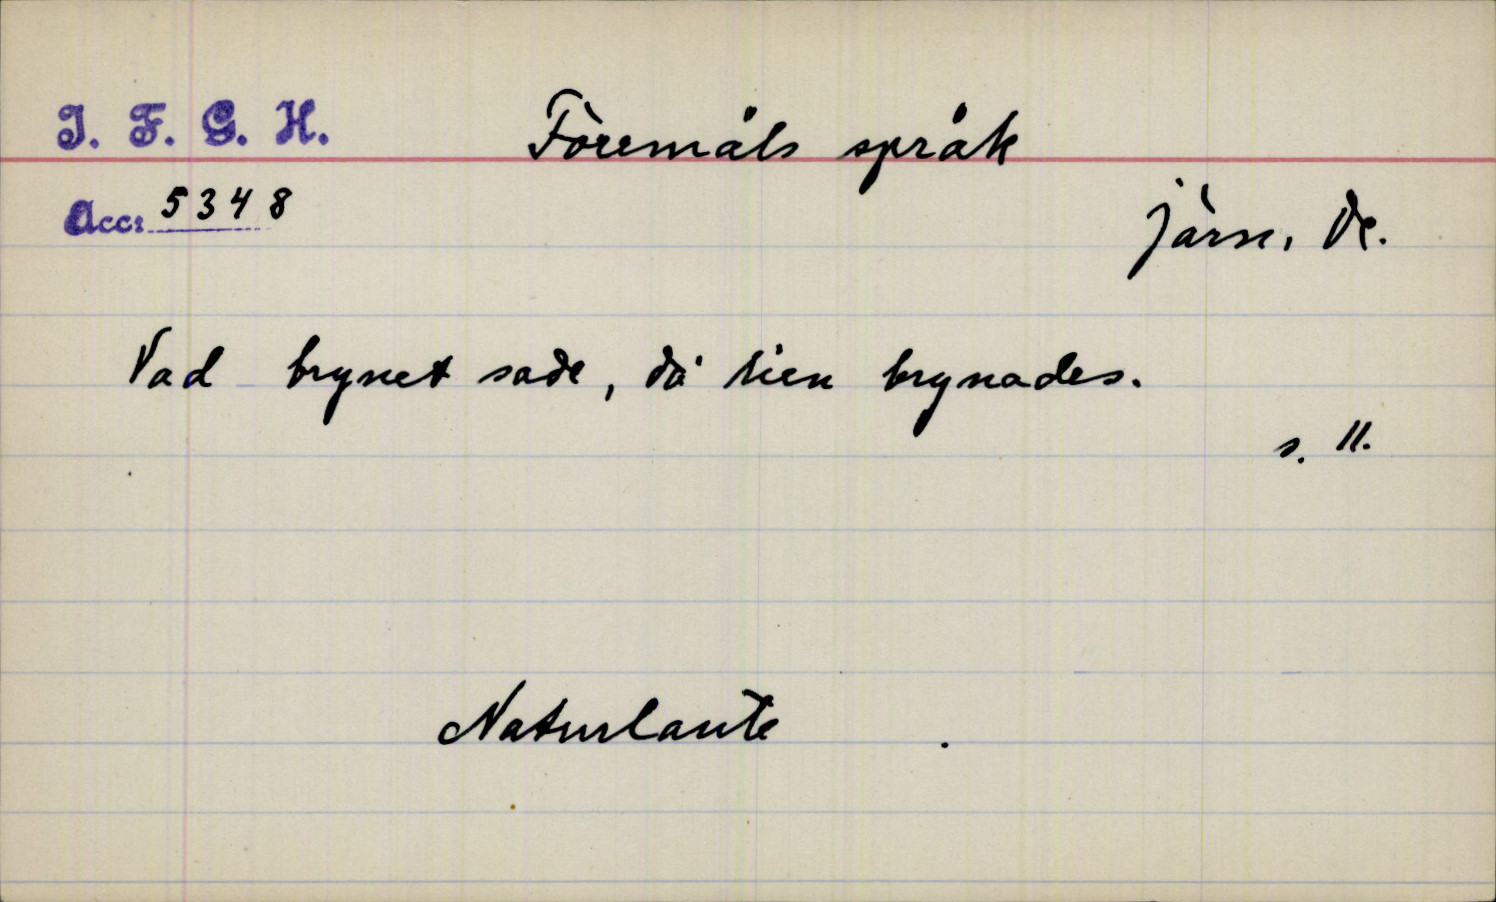 I. F. G. H.
Föremåls språk
Acc: 5348
Järn, Ds.
Vad brynet sade, då lien brynades.
s. 11.
Naturlaute